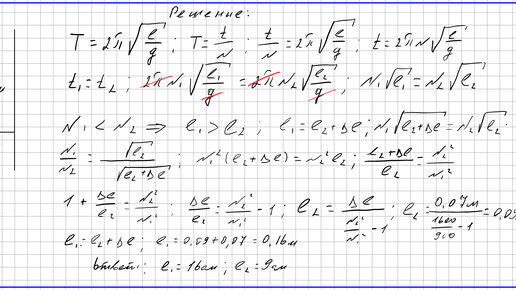 Решение:
T = 2π√(l/g) ; T = t/N ; t/N = 2π√(l/g) ; t = 2πN√(l/g)
t₁ = t₂ ; 2πN₁√(l₁/g) = 2πN₂√(l₂/g) ; N₁√l₁ = N₂√l₂
N₁ < N₂ ⇒ l₁ > l₂ ; l₁ = l₂ + Δl ; N₁√(l₂+Δl) = N₂√l₂
N₁/N₂ = √l₂/√(l₂+Δl) ; N₁²(l₂+Δl) = N₂²l₂ ; (l₂+Δl)/l₂ = N₂²/N₁²
1 + Δl/l₂ = N₂²/N₁² ; Δl/l₂ = N₂²/N₁² - 1 ; l₂ = Δl/(N₂²/N₁² - 1) ; l₂ = 0,07м/(1600/900 - 1) = 0,09
l₁ = l₂ + Δl ; l₁ = 0,09 + 0,07 = 0,16м
Ответ: l₁ = 16см ; l₂ = 9см